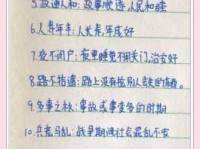 5.政通人和：政事顺遂，人民和睦
6.人寿年丰：人长寿，年成好
7.夜不闭户：夜里睡觉不用关门，治安好
8.路不拾遗：路上没有捡别人丢失的东西。
9.多事之秋：事故或事变多的时期
10.兵荒马乱：战争期间社会混乱不安